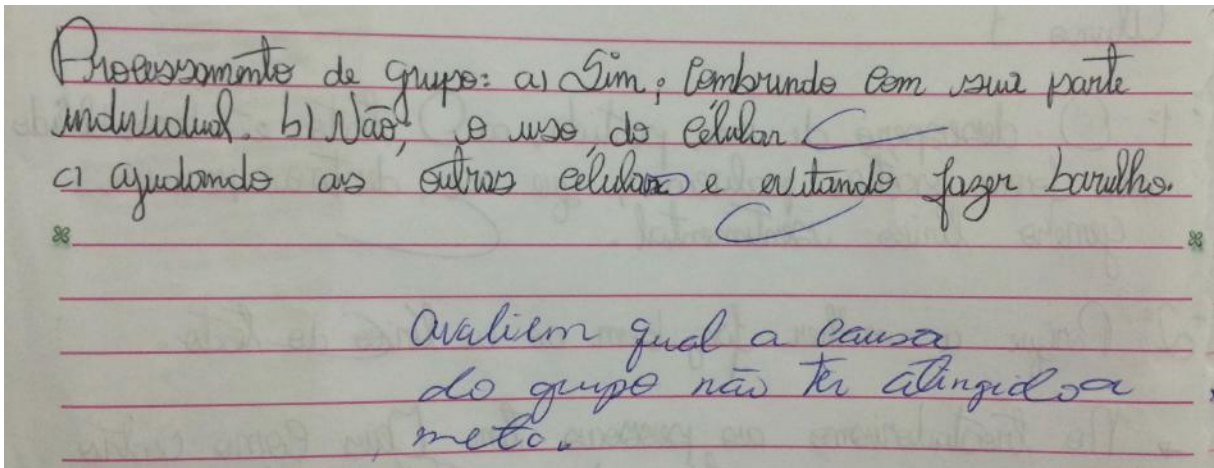 Processamento de grupo: a) Sim; Combrundo com sua parte
individual. b) Não, o uso do célular
c) ajudando as outras célular e evitando fazer barulho.
Avaliem qual a causa
do grupo não ter atingido a
meta.